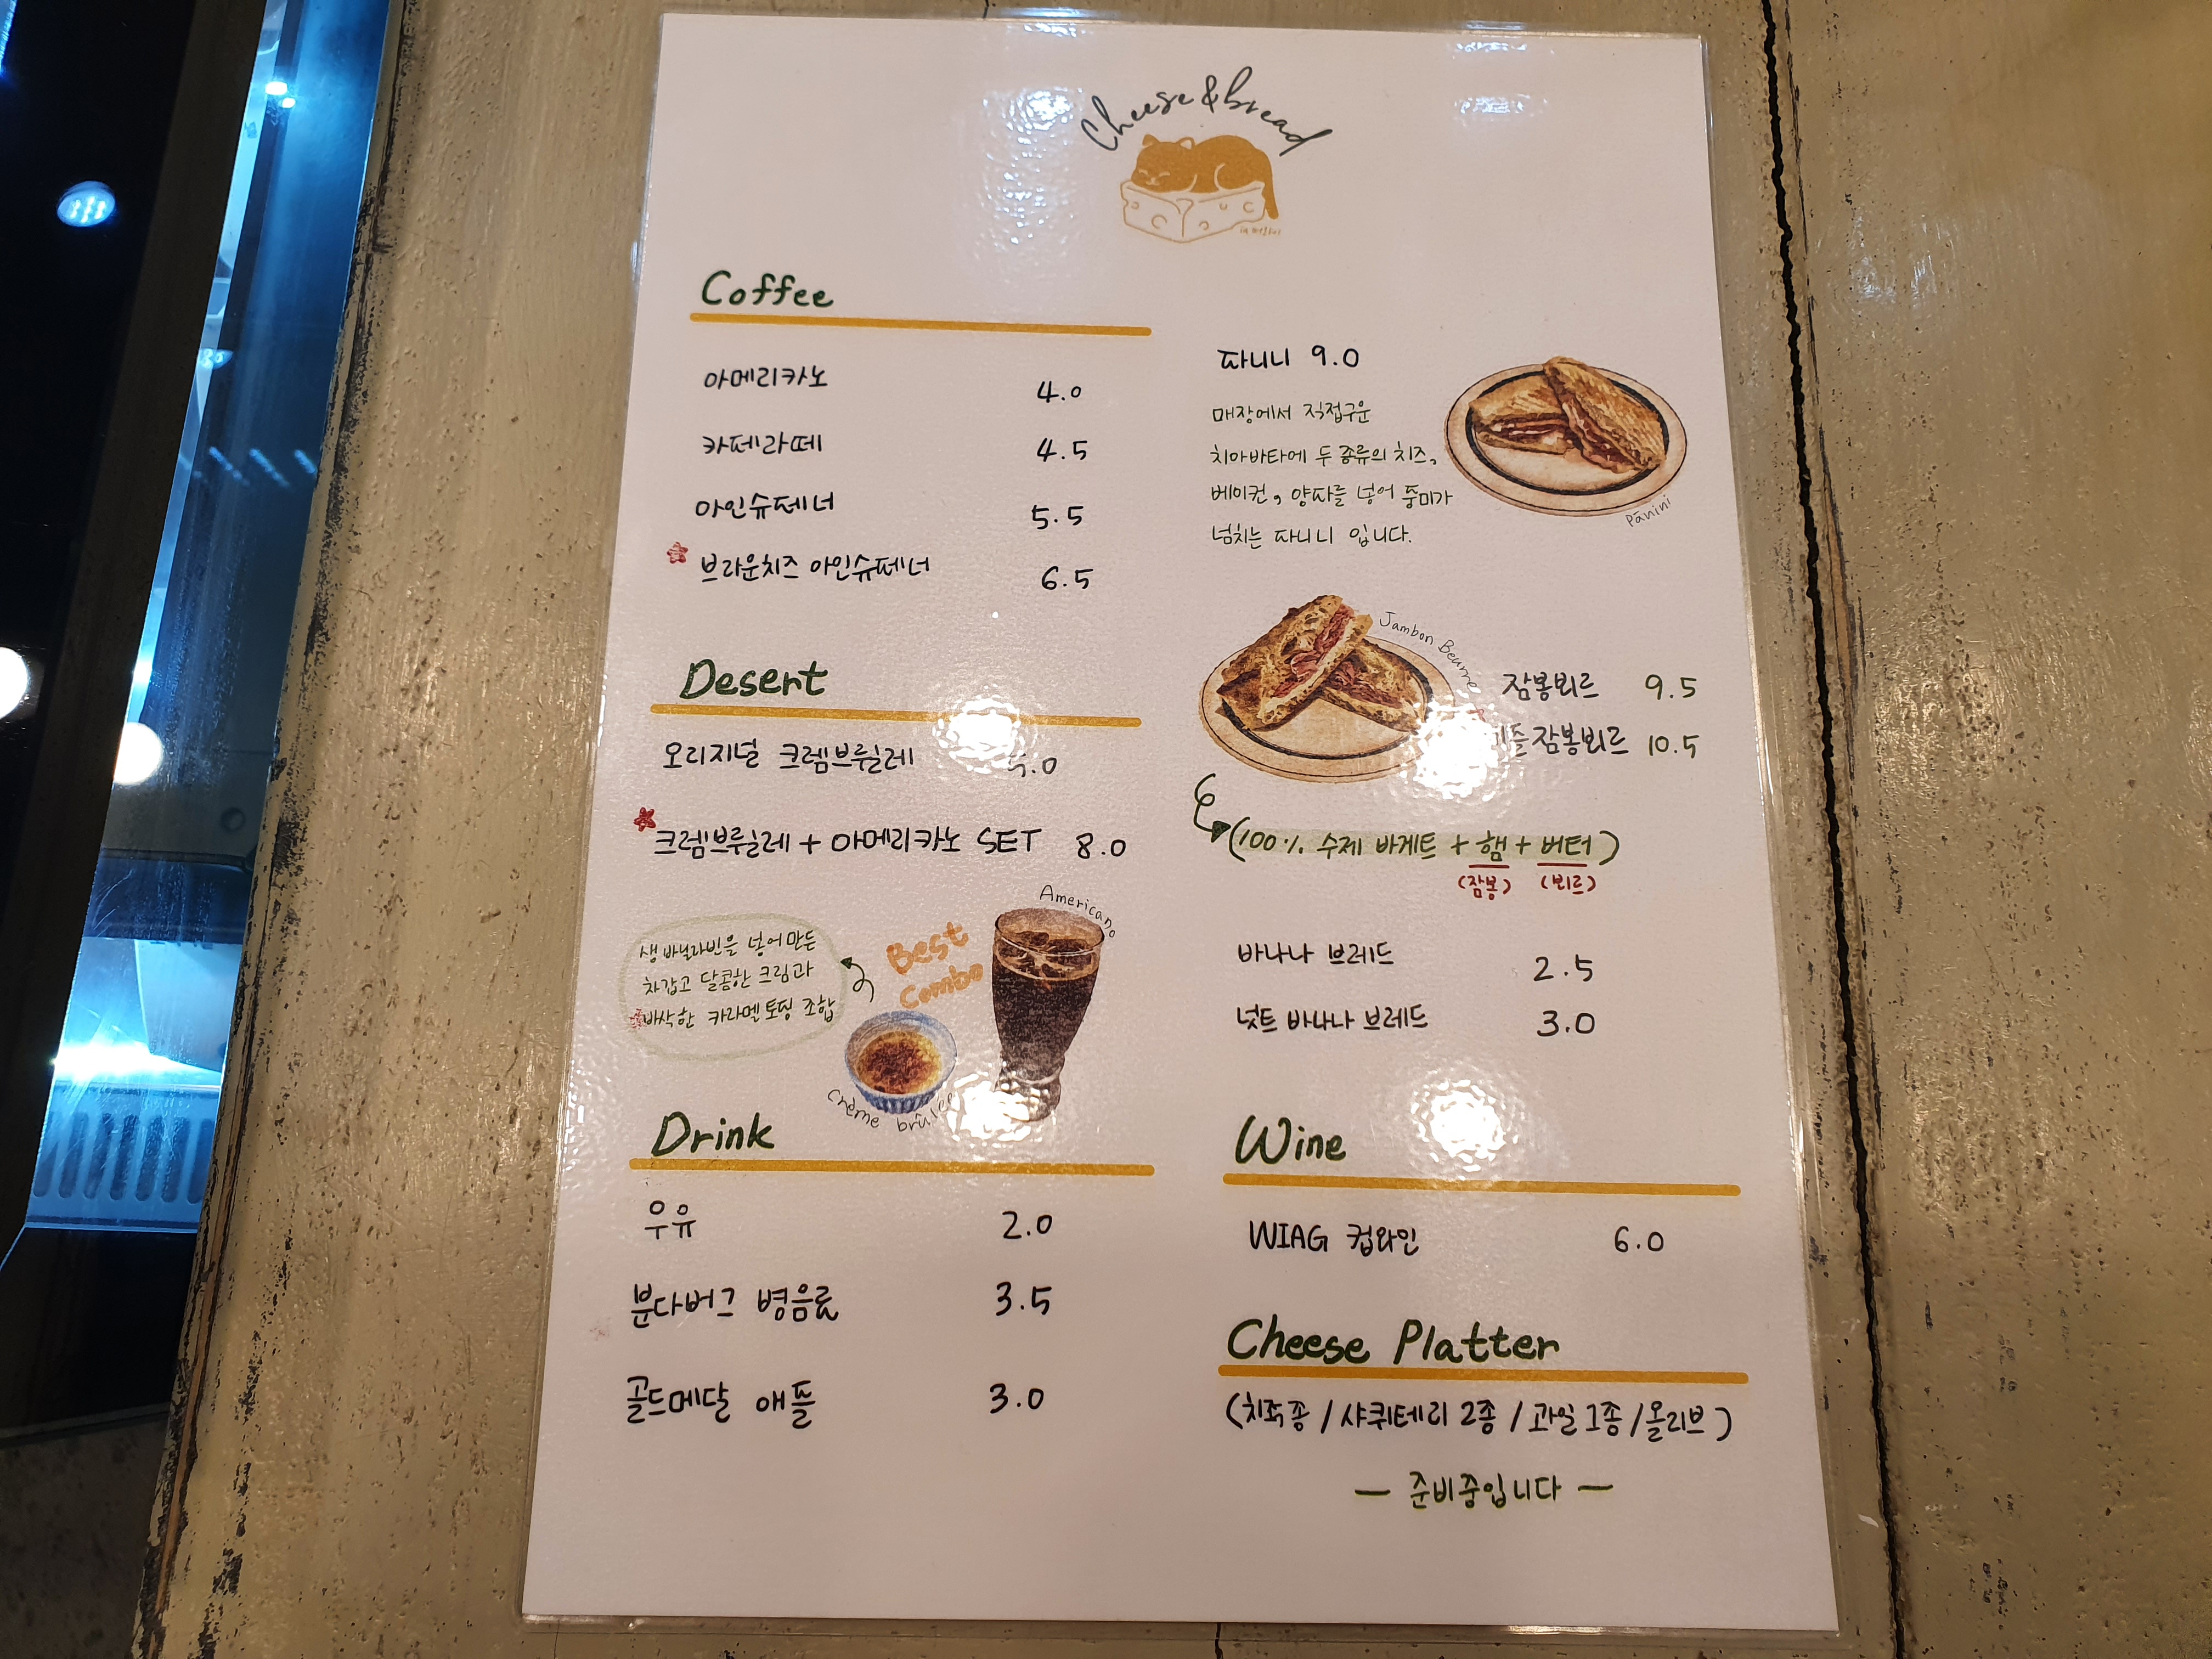 Cheese & bread
Coffee
아메리카노 4.0
카페라떼 4.5
아인슈페너 5.5
브라운치즈 아인슈페너 6.5
Desert
오리지널 크렘브륄레 5.0
크렘브륄레 + 아메리카노 SET 8.0
American
생 바닐라빈을 넣어 만든
차갑고 달콤한 크림과
바삭한 카라멜 토핑 조합
Best
Combo
Crème brûlée
Drink
우유 2.0
분다버그 병음료 3.5
골드메달 애플 3.0
파니니 9.0
매장에서 직접구운
치아바타에 두 종류의 치즈,
베이컨, 양파를 넣어 풍미가
넘치는 파니니 입니다.
Panini
Jambon Beurre
잠봉뵈르 9.5
잠봉뵈르 10.5
(100% 수제 바게트 + 햄 + 버터)
(잠봉) (뵈르)
바나나 브레드 2.5
넛트 바나나 브레드 3.0
Wine
WIAG 컵와인 6.0
Cheese Platter
/ 샤퀴테리 2종 / 과일 1종 / 올리브)
— 준비중입니다 —